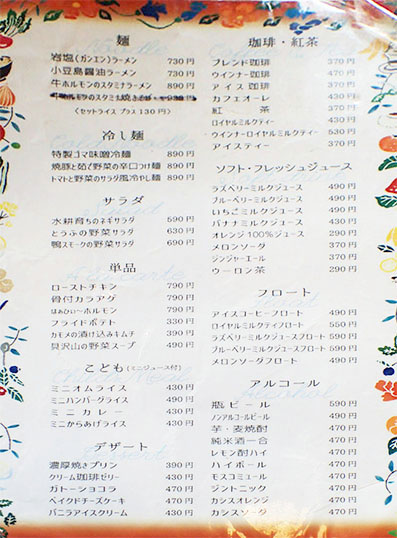 麺
岩塩(ガンエン)ラーメン 730円
小豆島醤油ラーメン 730円
牛ホルモンのスタミナラーメン 890円
牛ホルモンのスタミナ焼き
〈セットライス プラス 130円〉
冷し麺
特製ゴマ味噌冷麺 890円
焼豚と茹で野菜の辛口つけ麺 890円
トマトと野菜のサラダ風冷やし麺 890円
サラダ
水耕育ちのネギサラダ 590円
とうふの野菜サラダ 630円
鴨スモークの野菜サラダ 690円
単品
ローストチキン 790円
骨付カラアゲ 790円
はぁひぃ〜ホルモン 790円
フライドポテト 330円
カモメの漬け込みキムチ 390円
貝沢山の野菜スープ 490円
こども(ミニジュース付)
ミニオムライス 430円
ミニハンバーグライス 490円
ミニカレー 430円
ミニからあげライス 430円
デザート
濃厚焼きプリン 390円
クリーム珈琲ゼリー 430円
ガトーショコラ 470円
ベイクドチーズケーキ 470円
バニラアイスクリーム 430円
珈琲・紅茶
ブレンド珈琲 370円
ウインナー珈琲 470円
アイス珈琲 370円
カフェオーレ 430円
紅茶 370円
ロイヤルミルクティー 430円
ウインナーロイヤルミルクティー 530円
アイスティー 370円
ソフト・フレッシュジュース
ラズベリーミルクジュース 490円
ブルーベリーミルクジュース 490円
いちごミルクジュース 490円
バナナミルクジュース 430円
オレンジ100%ジュース 290円
メロンソーダ 370円
ジンジャーエール 370円
ウーロン茶 290円
フロート
アイスコーヒーフロート 490円
ロイヤルミルクティフロート 550円
ラズベリーミルクジュースフロート 590円
ブルーベリーミルクジュースフロート 590円
メロンソーダフロート 490円
アルコール
瓶ビール 590円
ノンアルコールビール 490円
芋・麦焼酎 470円
純米酒一合 470円
レモン酎ハイ 470円
ハイボール 470円
モスコミュール 470円
ジントニック 470円
カシスオレンジ 470円
カシスソーダ 470円